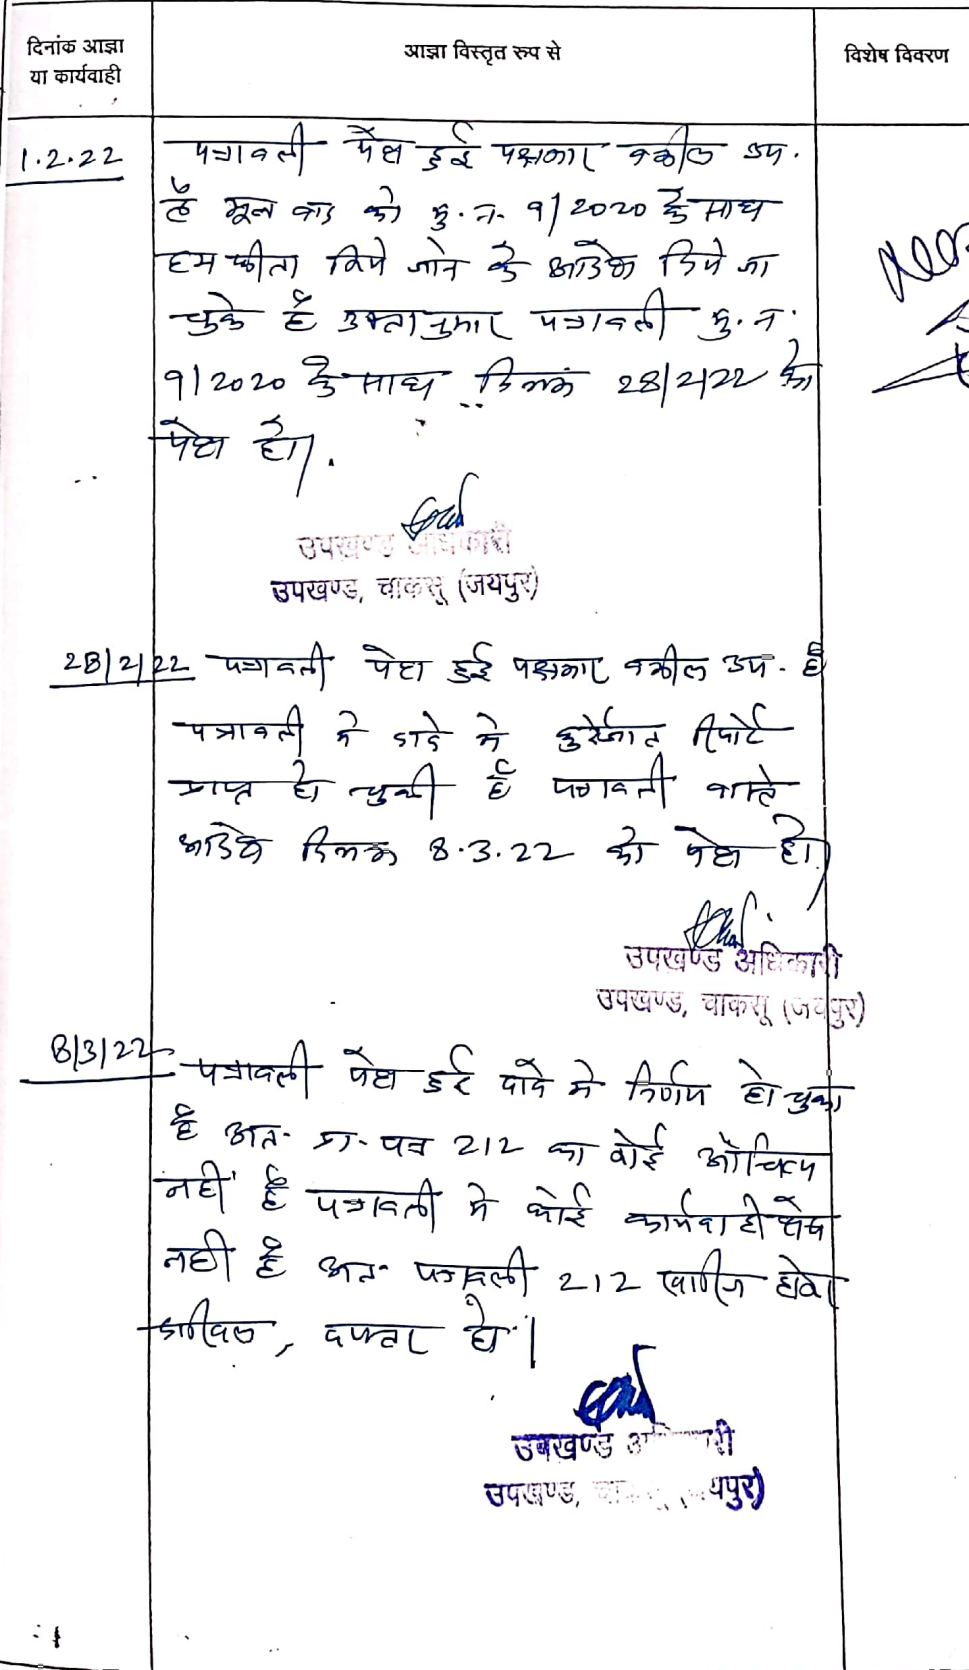 दिनांक आज्ञा
या कार्यवाही
आज्ञा विस्तृत रुप से
विशेष विवरण
1.2.22
पत्रावली पेश हुई पक्षकार वकील उप.
है मूल वाद को मु. न. 9/2020 के साथ
हमफीता किये जाने के आदेश दिये जा
चुके है उक्तानुसार पत्रावली मु. न.
9/2020 के साथ दिनांक 28/2/22 को
पेश हो।
उपखण्ड अधिकारी
उपखण्ड, चाकसू (जयपुर)
28/2/22 पत्रावली पेश हुई पक्षकार वकील उप. है
पत्रावली में वादे मे कुर्रेजात रिपोर्ट
प्राप्त हो चुकी है पत्रावली वास्ते
आदेश दिनांक 8.3.22 को पेश हो।
उपखण्ड अधिकारी
उपखण्ड, चाकसू (जयपुर)
8/3/22
पत्रावली पेश हुई वादे मे निर्णय हो चुका
है अत. प्रा. पत्र 212 का कोई औचित्य
नही है पत्रावली मे कोई कार्यवाही शेष
नही है अत. पत्रावली 212 खारीज होकर
दाखिल, दफ्तर हो।
उपखण्ड अधिकारी
उपखण्ड, चाकसू (जयपुर)